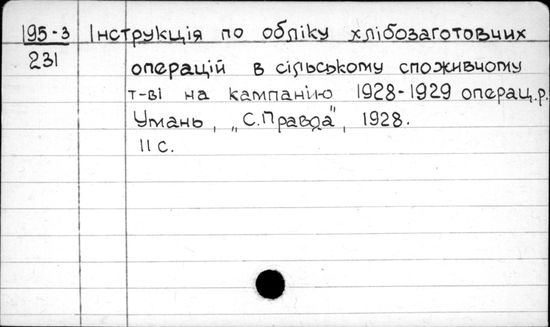 195-3 Інструкція по обліку хлібозаготовчих
231
операцій в сільському споживчому
т-ві на кампанію 1928-1929 операц.р.
Умань, „С.Правда", 1928.
11 с.